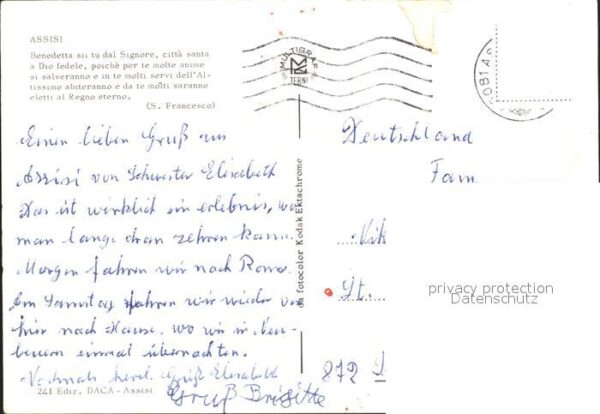 ASSISI
Benedetta sii tu dal Signore, città santa
a Dio fedele, poichè per te molte anime
si salveranno e in te molti servi dell'Al-
tissimo abiteranno e da te molti saranno
eletti al Regno eterno.
(S. Francesco)
MULTIGRAF
TERNI
06081 AS
Einen lieben Gruß aus
Assisi von Schwester Elisabeth
Das ist wirklich ein erlebnis, wo
man lange dran zehren kann.
Morgen fahren wir nach Rom.
Am Samstag fahren wir wieder von
hier nach Hause, wo wir in Neu-
beuern einmal übernachten.
Nochmals herzl. Grüß Elisabeth
Gruß Brigitte
241 Ediz. DACA - Assisi
da fotocolor Kodak Ektachrome
Deutschland
Fam
Nik
St.
872
privacy protection
Datenschutz